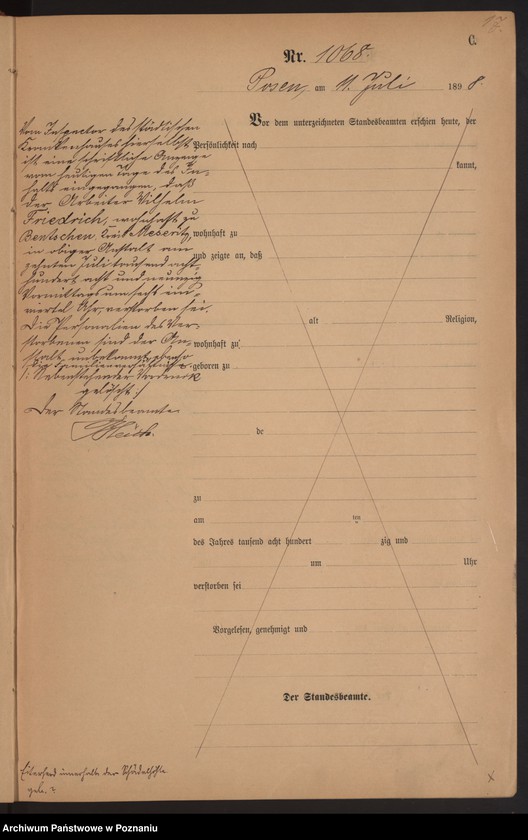 C.
Nr. 1068.
Posen, am 11. Juli 1898.
Vor dem unterzeichneten Standesbeamten erschien heute, der
Persönlichkeit nach
kannt,
wohnhaft zu
und zeigte an, daß
alt Religion,
wohnhaft zu
geboren zu
de
zu
am ten
des Jahres tausend acht hundert zig und
um Uhr
verstorben sei
Vorgelesen, genehmigt und
Der Standesbeamte.
Vom Inspector des städtischen
Krankenhauses hierselbst
ist eine schriftliche Anzeige
vom heutigen Tage des In-
halts eingegangen, daß
der Arbeiter Wilhelm
Friedrich, wohnhaft zu
Bentschen Kreis Meseritz,
in obiger Anstalt am
zehnten Juli tausend acht-
hundert acht und neunzig
Vormittags um sechs ein
viertel Uhr, verstorben sei.
Die Personalien des Ver-
storbenen sind der An-
stalt unbekannt
Nebenstehender Vordruck
gelöscht
Der Standesbeamte
Eiterherd innerhalb der Schädelhöhle
Archiwum Państwowe w Poznaniu